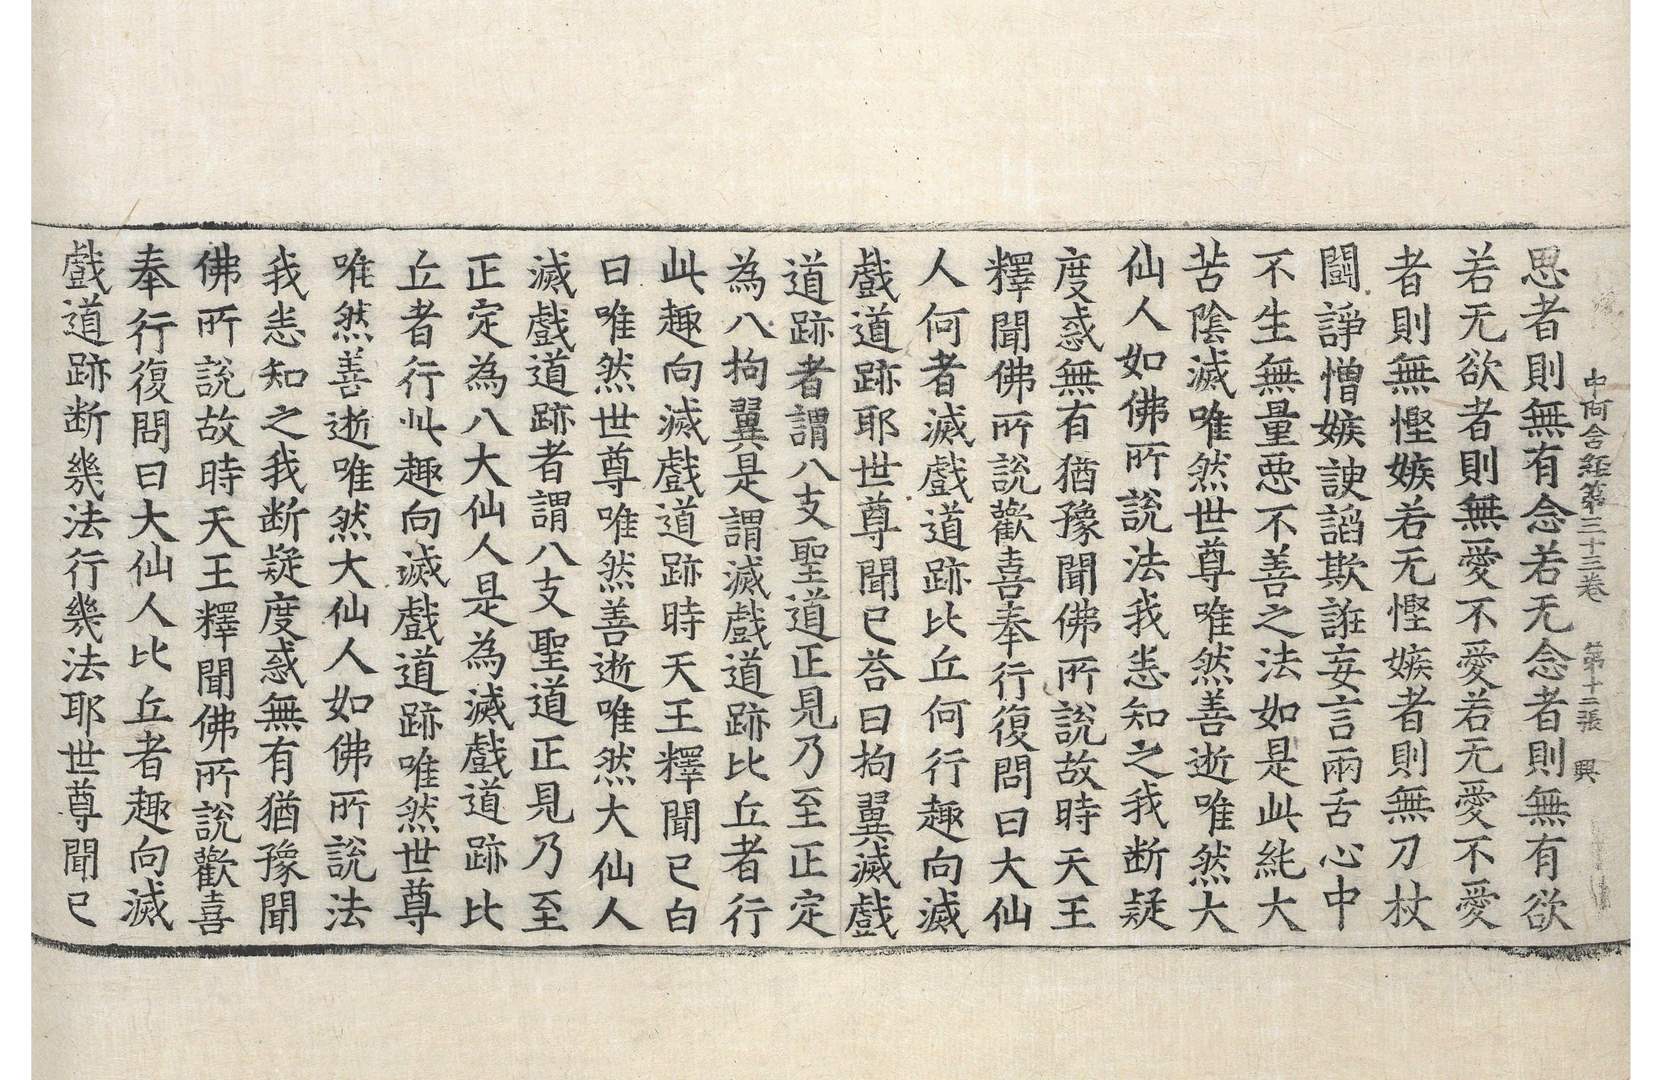 中阿含經第三十三卷 第十二張 興
思者則無有念若无念者則無有欲
若无欲者則無愛不愛若无愛不愛
者則無慳嫉若无慳嫉者則無刀杖
鬪諍憎嫉諛諂欺誑妄言兩舌心中
不生無量惡不善之法如是此純大
苦陰滅唯然世尊唯然善逝唯然大
仙人如佛所說法我悉知之我断疑
度惑無有猶豫聞佛所說故時天王
釋聞佛所說歡喜奉行復問曰大仙
人何者滅戲道跡比丘何行趣向滅
戲道跡耶世尊聞已荅曰拘翼滅戲
道跡者謂八支聖道正見乃至正定
為八拘翼是謂滅戲道跡比丘者行
此趣向滅戲道跡時天王釋聞已白
曰唯然世尊唯然善逝唯然大仙人
滅戲道跡者謂八支聖道正見乃至
正定為八大仙人是為滅戲道跡比
丘者行此趣向滅戲道跡唯然世尊
唯然善逝唯然大仙人如佛所說法
我悉知之我断疑度惑無有猶豫聞
佛所說故時天王釋聞佛所說歡喜
奉行復問曰大仙人比丘者趣向滅
戲道跡断幾法行幾法耶世尊聞已